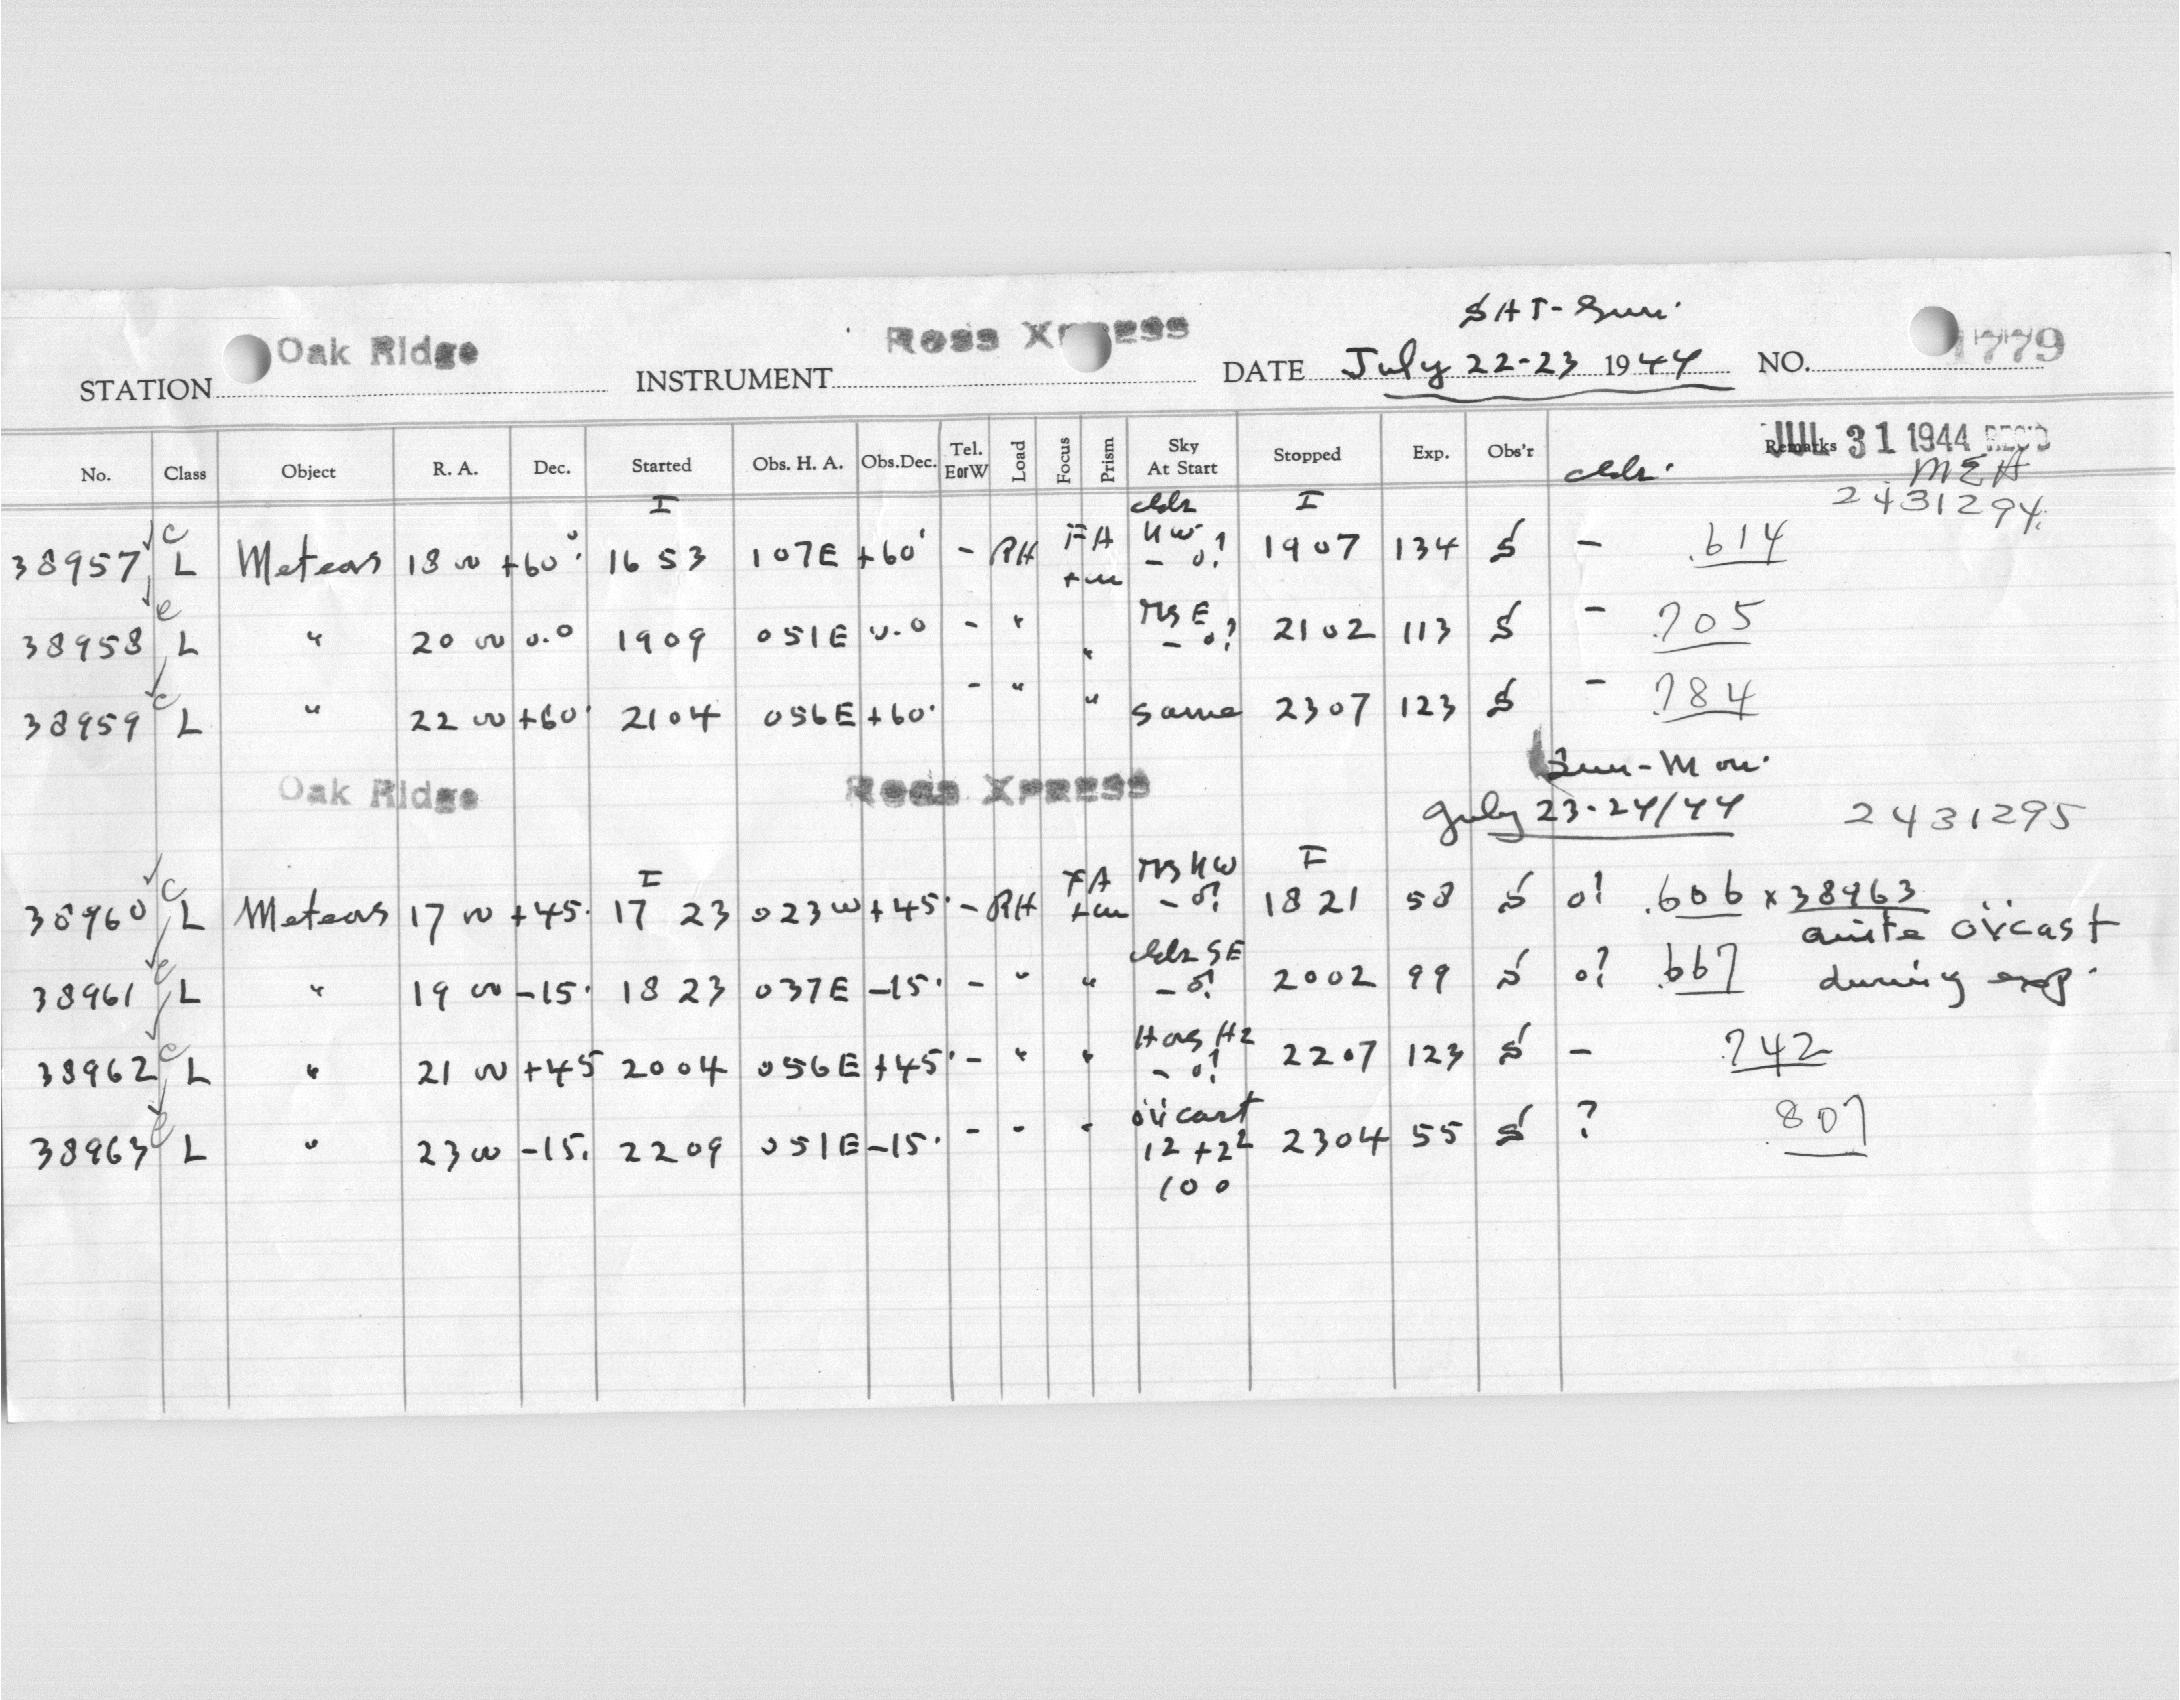 SAT-Sun.
Oak Ridge Ross Xpress 1779
STATION INSTRUMENT DATE July 22-23 1944 NO.
JUL 31 1944 REC'D
No. Class Object R. A. Dec. Started Obs. H. A. Obs.Dec. Tel. E or W Load Focus Prism Sky At Start Stopped Exp. Obs'r Remarks
clds. MEH
I clds I 2431294.
38957 c L Meteors 18 00 +60° 16 53 107E +60° - RH FA NW - 0? 1907 134 S - .614
38958 e L " 20 00 0.0 1909 051E 0.0 - " " E - 0? 2102 113 S - .705
38959 c L " 22 00 +60° 2104 056E +60° - " " same 2307 123 S - .784
Sun-Mon.
Oak Ridge Ross Xpress July 23-24/44 2431295
I I
38960 c L Meteors 17 00 +45° 17 23 023W +45° - RH FA NW - 0? 1821 58 S 0? .606 x 38963
quite ov'cast
38961 e L " 19 00 -15° 18 23 037E -15° - " " clds SE - 0? 2002 99 S 0? .667 during exp.
38962 c L " 21 00 +45 2004 056E +45° - " " Has Hz - 0? 2207 123 S - .742
38963 e L " 23 00 -15° 2209 051E -15° - " " ov'cast 2304 55 S ? .807
100